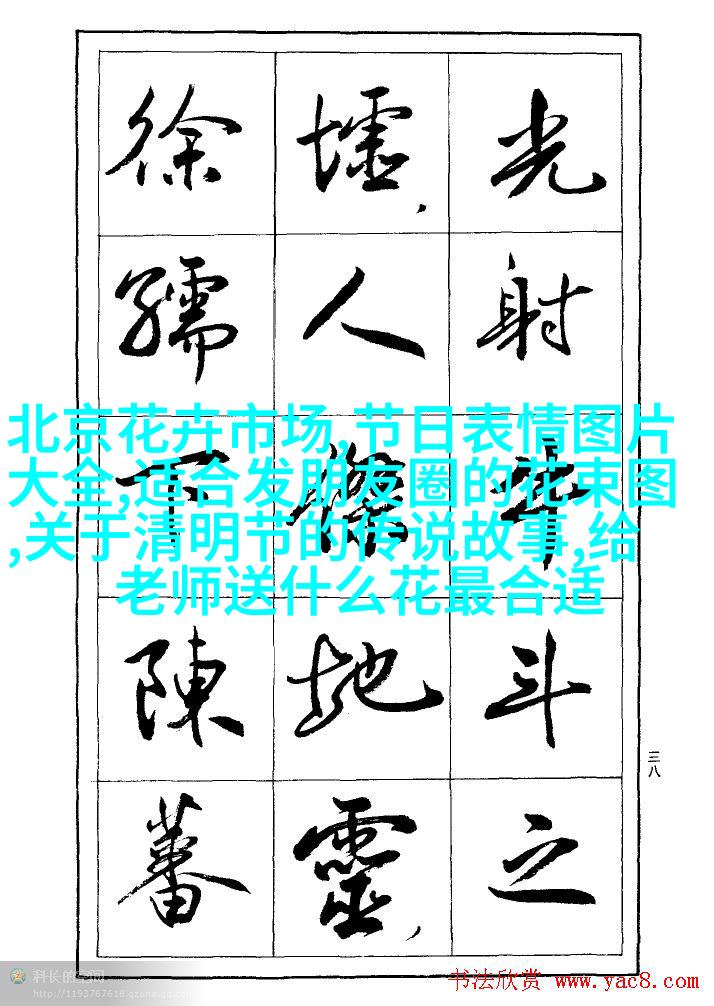 光射牛斗之
墟,人傑地靈,
徐孺下陳蕃
北京花卉市场,节日表情图片
大全,适合发朋友圈的花束图
,关于清明节的传说故事,给
老师送什么花最合适
三八
科长的空间
http://1193767618.qzone.qq.com
书法欣赏 www.yac8.com